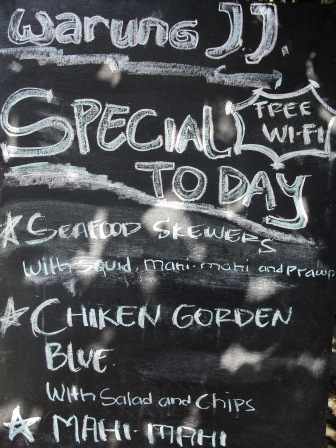 Warung J.J.
FREE
WI-FI
SPECIAL
TODAY
SEAFOOD SKEWERS
With squid, mahi-mahi and prawn
CHIKEN GORDEN
BLUE.
With Salad and Chips
MAHI-MAHI